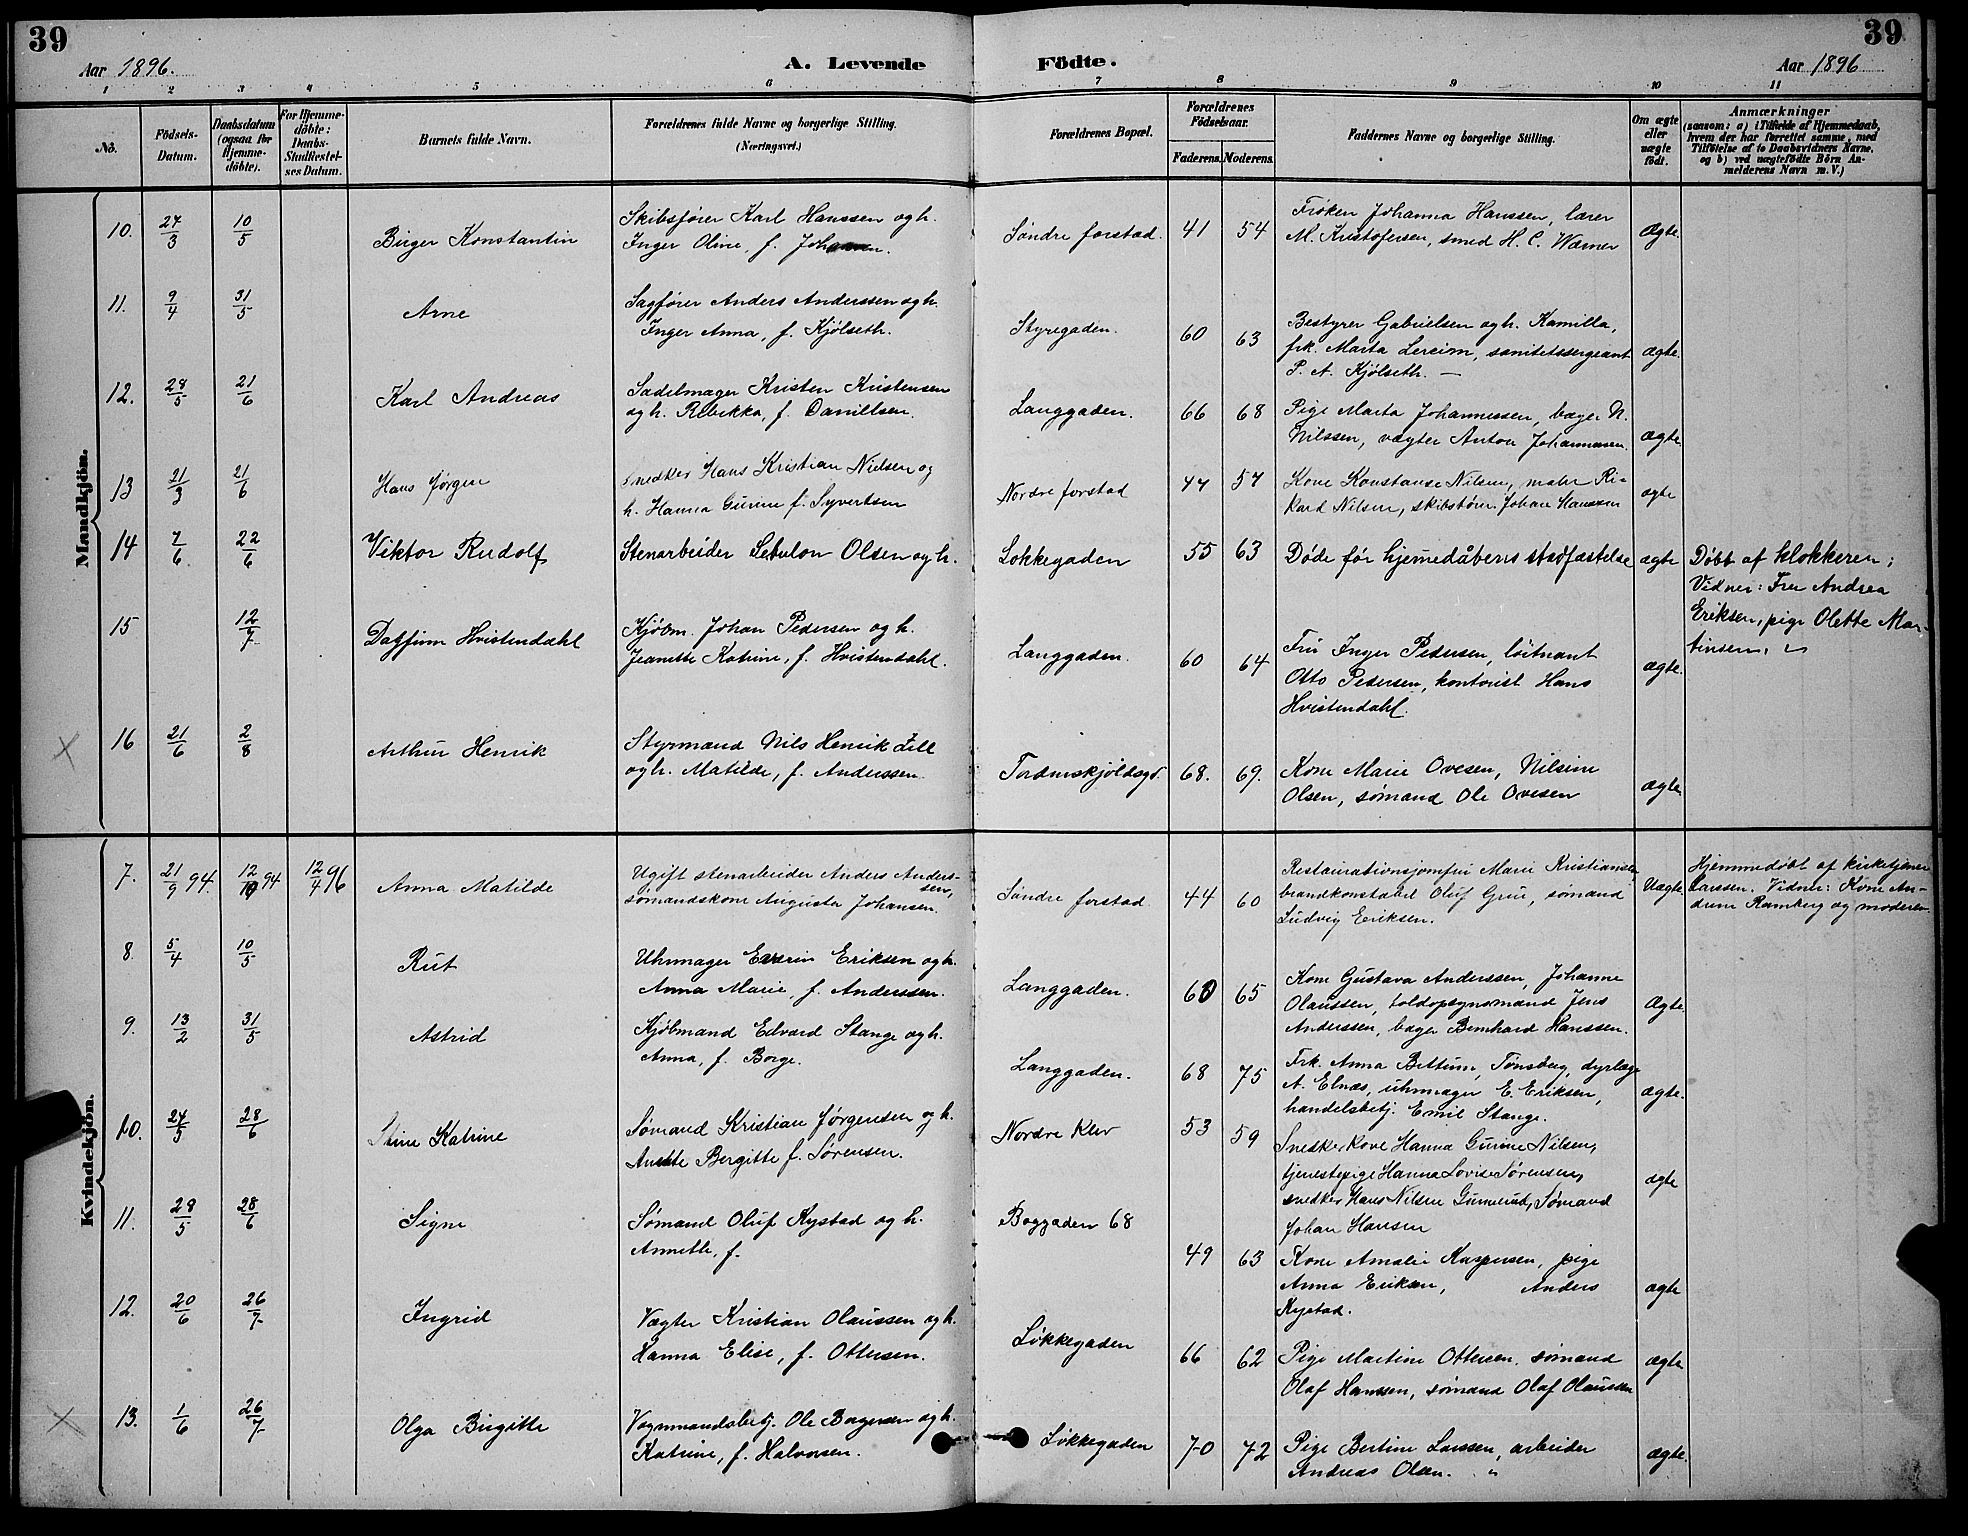 39
39
Aar 1896.
A. Levende Födte.
Aar 1896
1 2 3 4 5 6 7 8 9 10 11
No.
Födsels-
Datum.
Daabsdatum
(ogsaa for
Hjemme-
döbte).
For Hjemme-
döbte:
Daabs-
Stadfæstel-
ses Datum.
Barnets fulde Navn.
Forældrenes fulde Navne og borgerlige Stilling.
(Næringsvei.)
Forældrenes Bopæl.
Forældrenes
Födselsaar.
Faderens. Moderens.
Faddernes Navne og borgerlige Stilling.
Om ægte
eller
uægte
födt.
Anmærkninger
(saasom: a) i Tilfælde af Hjemmedaab,
hvem der har forrettet samme, med
Tilföielse af to Daabsvidners Navne,
og b) ved uægtefödte Börn An-
melderens Navn m. V.)
Mandkjön.
10. 24/3 10/5 Birger Konstantin
Skibsfører Karl Hanssen og h.
Inger Oline, f. Johannesen.
Søndre forstad. 41 54
Frøken Johanna Hanssen, lærer
M. Kristofersen, smed H. C. Warner
Ægte.
11. 9/4 31/5 Arne
Sagfører Anders Anderssen og h.
Inger Anna, f. Kjølseth.
Styregaden. 60 63
Bestyrer Gabrielsen og h. Kamilla,
frk. Marta Lereim, sanitetssergeant
P. A. Kjølseth. —
ægte.
12. 28/5 21/6 Karl Andreas
Sadelmager Kristen Kristensen
og h. Rebekka, f. Daniellsen.
Langgaden. 66 68
Pige Marta Johannessen, bager N.
Nilssen, vægter Anton Johannessen.
ægte
13 21/3 21/6 Hans Jørgen
Snedker Hans Kristian Nielsen og
h. Hanna Gurine f. Syvertsen
Nordre forstad 47 57
Kone Konstanse Nilsen, maler Ri-
kard Nilsen, skibsfører Johan Hanssen
ægte
14 7/6 22/6 Viktor Rudolf
Stenarbeider Sebulon Olsen og h.
Løkkegaden 55 63
Døde før hjemedåbens stadfæstelse
ægte
Døbt af klokkeren;
Vidner: Fru Andrea
Eriksen, pige Olette Mar-
tinsen.
15 12/7 Dagfinn Hvistendahl
Kjøbm. Johan Pedersen og h.
Jeanette Katrine, f. Hvistendahl.
Langgaden. 60 64
Fru Inger Pedersen, løitnant
Otto Pedersen, kontorist Hans
Hvistendahl.
ægte.
16 21/6 2/8 Arthur Henrik
Styrmand Nils Henrik Lill
og h. Matilde, f. Anderssen.
Tordenskjoldsgd. 68. 69.
Kone Marie Ovesen, Nilsine
Olsen, sømand Ole Ovesen
ægte
Kvindekjön.
7. 21/9 94 12/10 94 12/4 96 Anna Matilde
Ugift stenarbeider Anders Anders-
sen, sømandskone Augusta Johansen.
Søndre forstad 44 60
Restaurationsjomfru Marie Kristiansen
brandkonstabel Oluf Grue, sømand
Ludvig Eriksen.
Uægte.
Hjemmedøbt af kirketjener
Larssen. Vidner: Kone An-
drine Ramberg og moderen.
8. 5/4 10/5 Rut
Uhrmager Everin Eriksen og h.
Anna Marie, f. Anderssen.
Langgaden. 60 65
Kone Gustava Anderssen, Johanne
Olaussen, toldopsynsmand Jens
Anderssen, bager Bernhard Hanssen.
Ægte.
9. 13/2 31/5 Astrid
Kjøbmand Edvard Stange og h.
Anna, f. Borge.
Langgaden. 68 75
Frk. Anna Bettum, Tønsberg, dyrlæge
A. Elnæs, uhrmager E. Eriksen,
handelsbetj. Emil Stange.
ægte.
10. 24/5 28/6 Stine Katrine
Sømand Kristian Jørgensen og h.
Anette Bergitte f. Sørensen.
Nordre Klev 53 59
Snedkerkone Hanna Gurine Nilsen,
tjenestepige Hanna Lovise Sørensen,
snedker Hans Nilsen Gunnerud, Sømand
Johan Hansen
ægte
11. 28/5 28/6 Signe
Sømand Oluf Rystad og h.
Annette, f.
Baggaden 68 49 63
Kone Amalie Kaspersen, pige
Anna Eriksen, Anders
Rystad.
ægte
12. 20/6 26/7 Ingrid
Vægter Kristian Olaussen og h.
Hanna Elise, f. Ottersen.
Løkkegaden 66 62
Pige Martine Ottersen, sømand
Olaf Hanssen, sømand Olaf Olaussen
ægte
13. 1/6 26/7 Olga Birgitte
Vognmandsbetj. Ole Borgersen og h.
Katrine, f. Halvorsen.
Løkkegaden 70 72
Pige Bertine Larssen, arbeider
Andreas Olsen.
ægte.